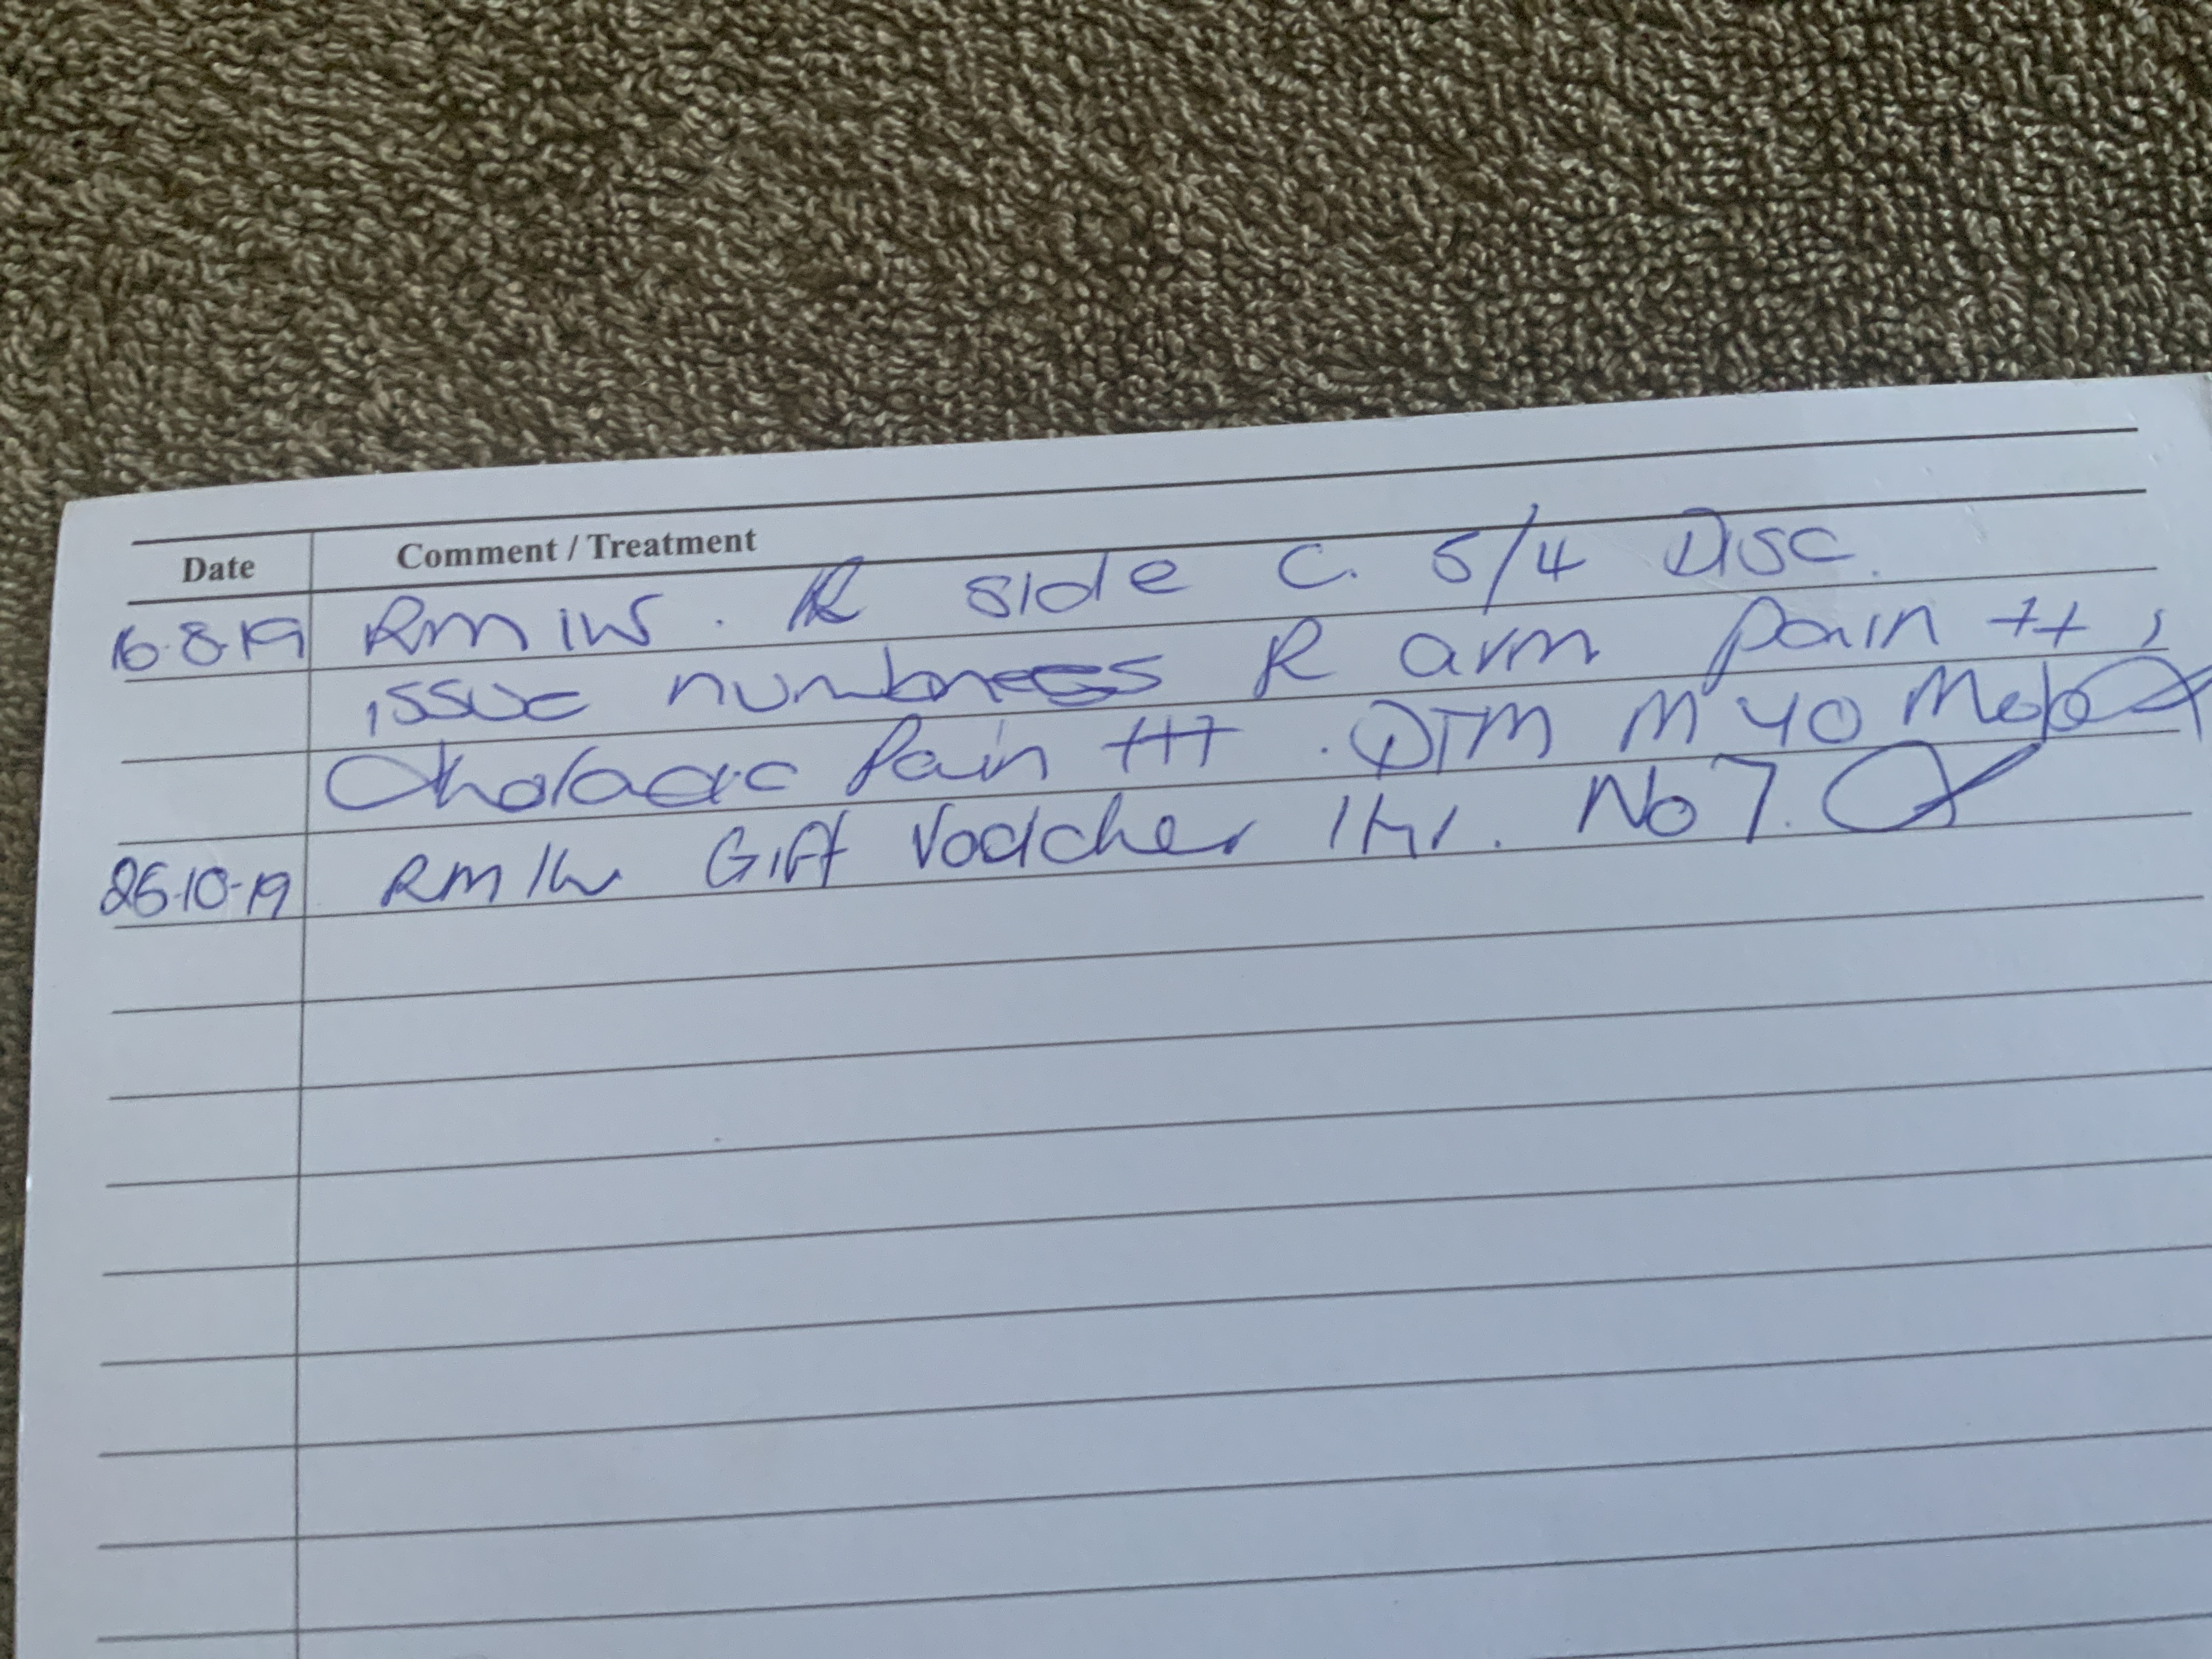 Date Comment / Treatment
16.8.19 RM IW. R side C. 5/4 Disc.
issue numbness R arm pain ++,
Pain +++. DTM M YO
26.10.19 RM IW Gift Voucher 1 Hr. No 7.